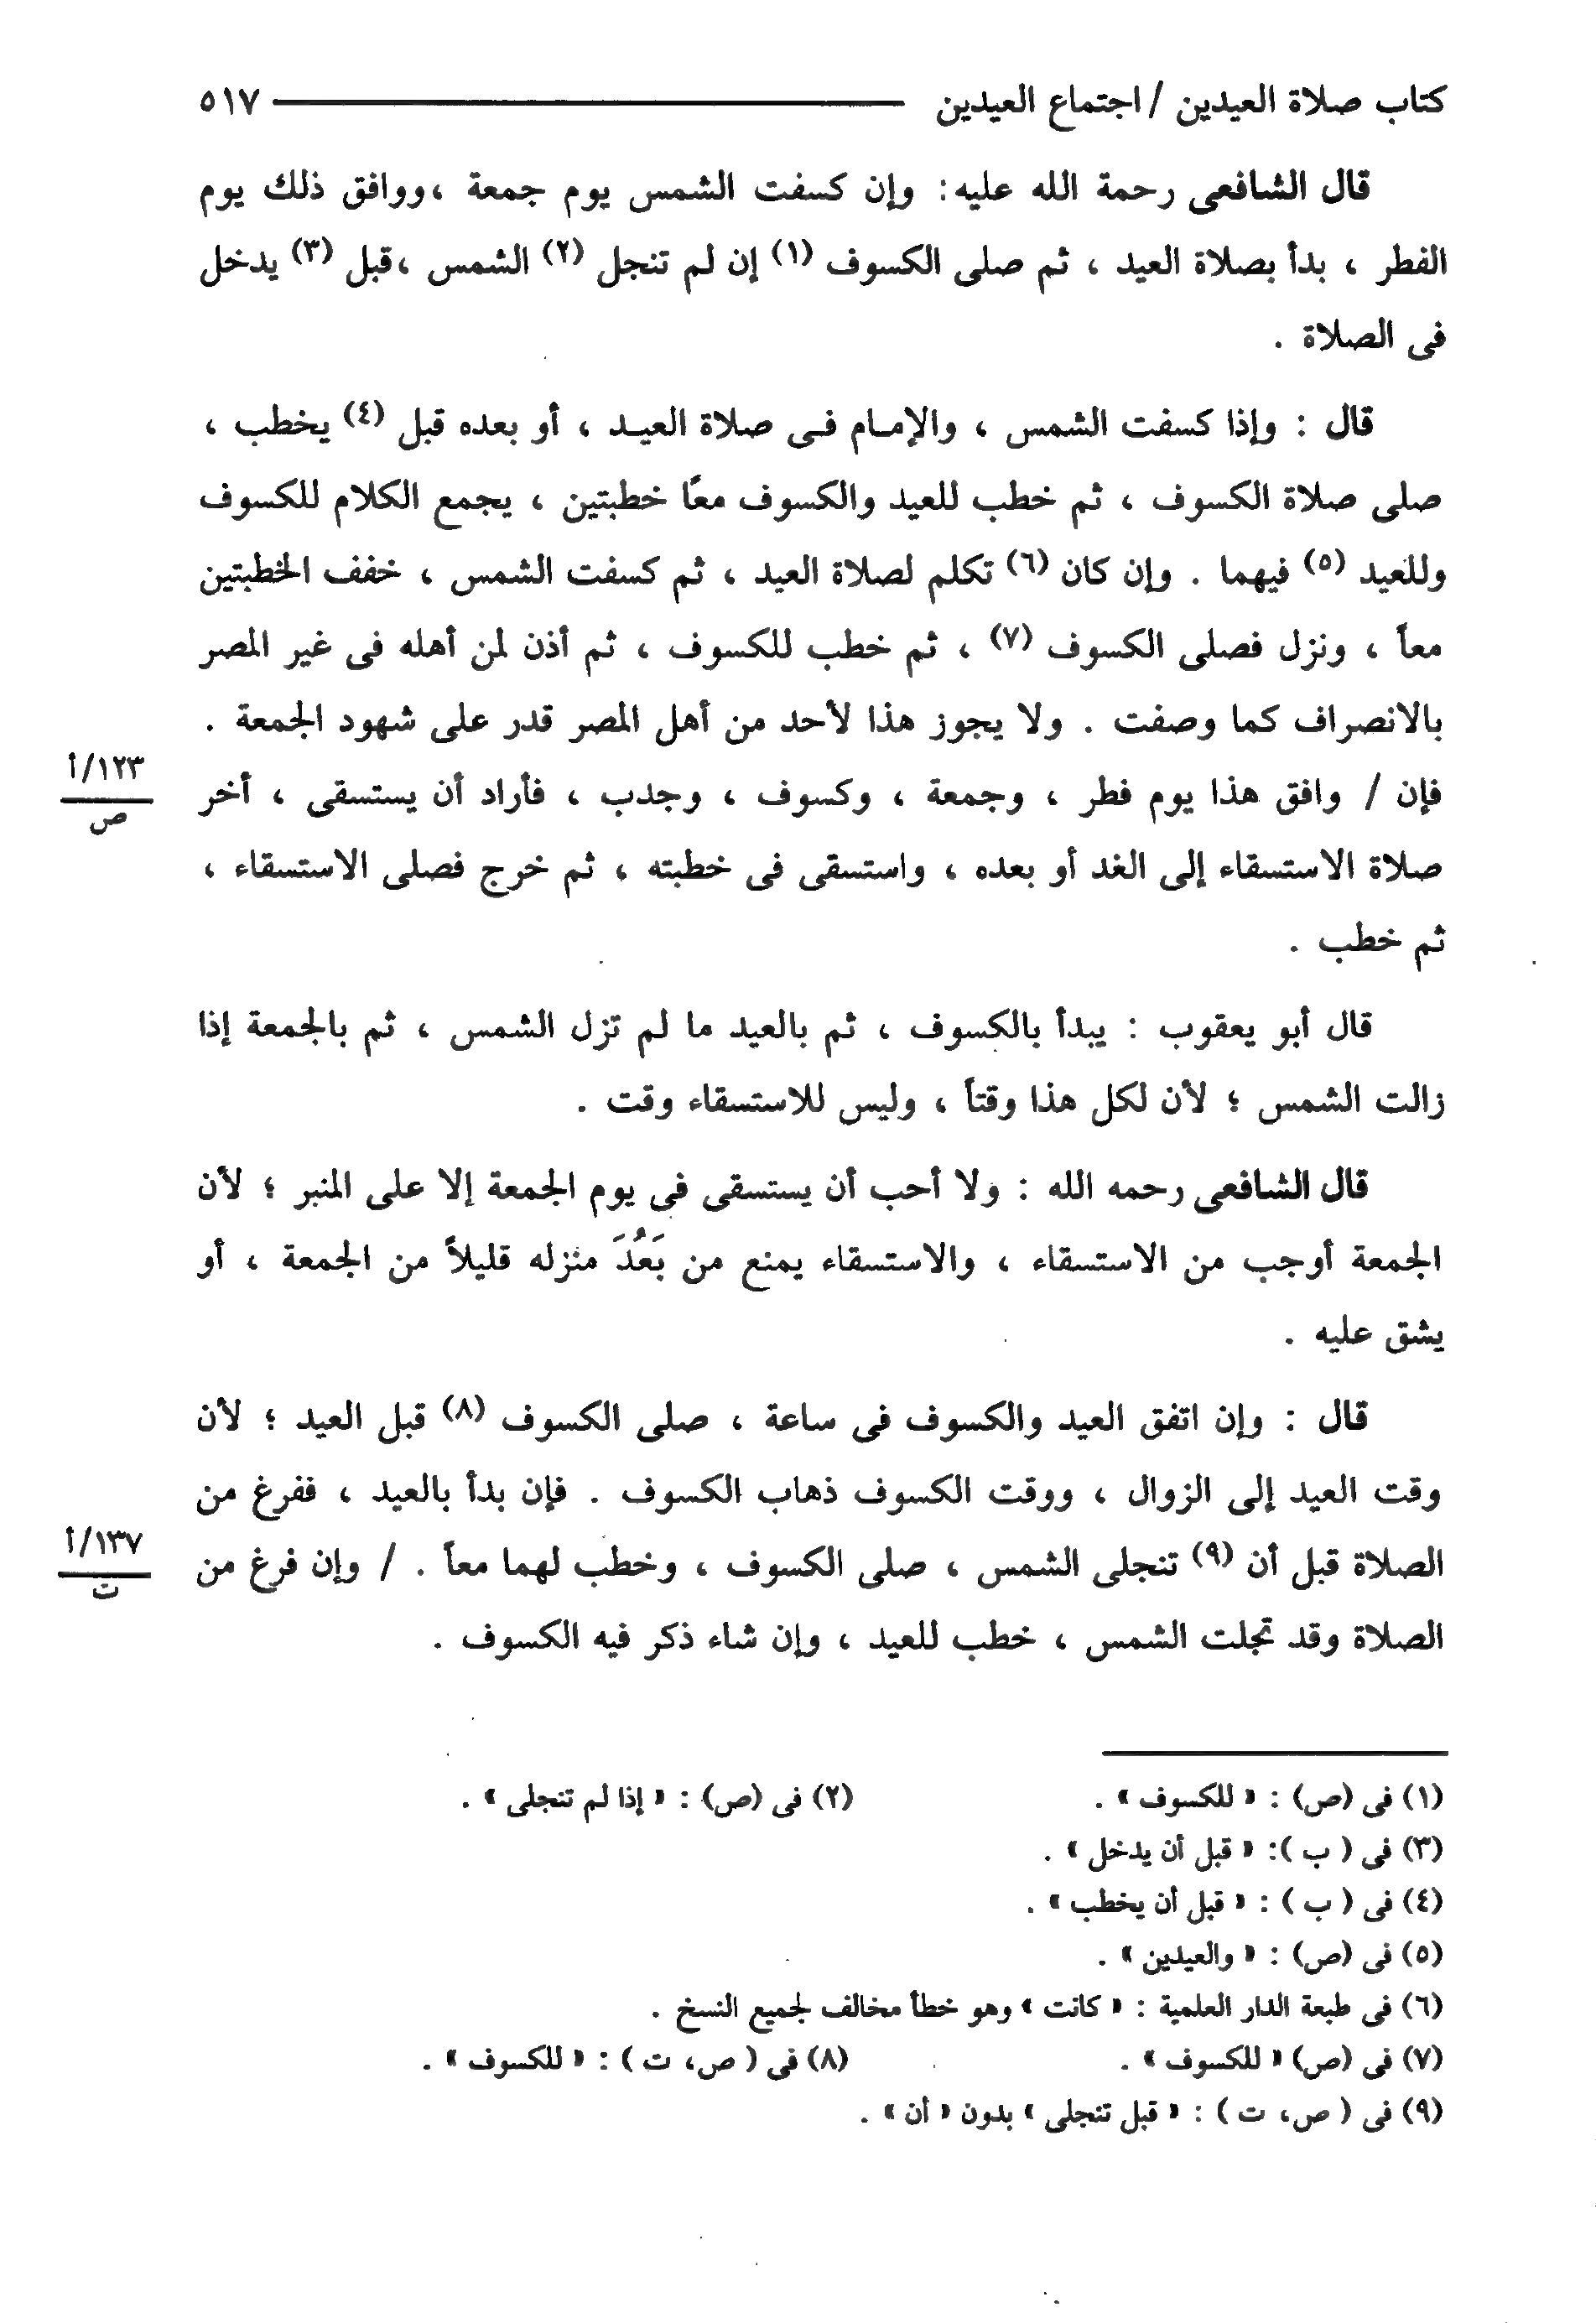 كتاب صلاة العيدين / اجتماع العيدين ٥١٧
قال الشافعى رحمة الله عليه: وإن كسفت الشمس يوم جمعة ،ووافق ذلك يوم
الفطر ، بدأ بصلاة العيد ، ثم صلى الكسوف (١) إن لم تنجل (٢) الشمس ،قبل (٣) يدخل
فى الصلاة .
قال : وإذا كسفت الشمس ، والإمام فى صلاة العيد ، أو بعده قبل (٤) يخطب ،
صلى صلاة الكسوف ، ثم خطب للعيد والكسوف معًا خطبتين ، يجمع الكلام للكسوف
وللعيد (٥) فيهما . وإن كان (٦) تكلم لصلاة العيد ، ثم كسفت الشمس ، خفف الخطبتين
معاً ، ونزل فصلى الكسوف (٧) ، ثم خطب للكسوف ، ثم أذن لمن أهله فى غير المصر
بالانصراف كما وصفت . ولا يجوز هذا لأحد من أهل المصر قدر على شهود الجمعة .
١٢٣/أ
ص
فإن / وافق هذا يوم فطر ، وجمعة ، وكسوف ، وجدب ، فأراد أن يستسقى ، أخر
صلاة الاستسقاء إلى الغد أو بعده ، واستسقى فى خطبته ، ثم خرج فصلى الاستسقاء ،
ثم خطب .
قال أبو يعقوب : يبدأ بالكسوف ، ثم بالعيد ما لم تزل الشمس ، ثم بالجمعة إذا
زالت الشمس ؛ لأن لكل هذا وقتاً ، وليس للاستسقاء وقت .
قال الشافعى رحمه الله : ولا أحب أن يستسقى فى يوم الجمعة إلا على المنبر ؛ لأن
الجمعة أوجب من الاستسقاء ، والاستسقاء يمنع من بَعُدَ منزله قليلاً من الجمعة ، أو
يشق عليه .
قال : وإن اتفق العيد والكسوف فى ساعة ، صلى الكسوف (٨) قبل العيد ؛ لأن
وقت العيد إلى الزوال ، ووقت الكسوف ذهاب الكسوف . فإن بدأ بالعيد ، ففرغ من
١٣٧/أ
ت
الصلاة قبل أن (٩) تنجلى الشمس ، صلى الكسوف ، وخطب لهما معاً . / وإن فرغ من
الصلاة وقد تجلت الشمس ، خطب للعيد ، وإن شاء ذكر فيه الكسوف .
(١) فى (ص) : « للكسوف » . (٢) فى (ص) : « إذا لم تنجلى » .
(٣) فى ( ب ): « قبل أن يدخل » .
(٤) فى ( ب ) : « قبل أن يخطب » .
(٥) فى (ص) : « والعيدين » .
(٦) فى طبعة الدار العلمية : « كانت » وهو خطأ مخالف لجميع النسخ .
(٧) فى (ص) « للكسوف » . (٨) فى ( ص، ت ) : « للكسوف » .
(٩) فى ( ص، ت ) : « قبل تنجلى » بدون « أن » .